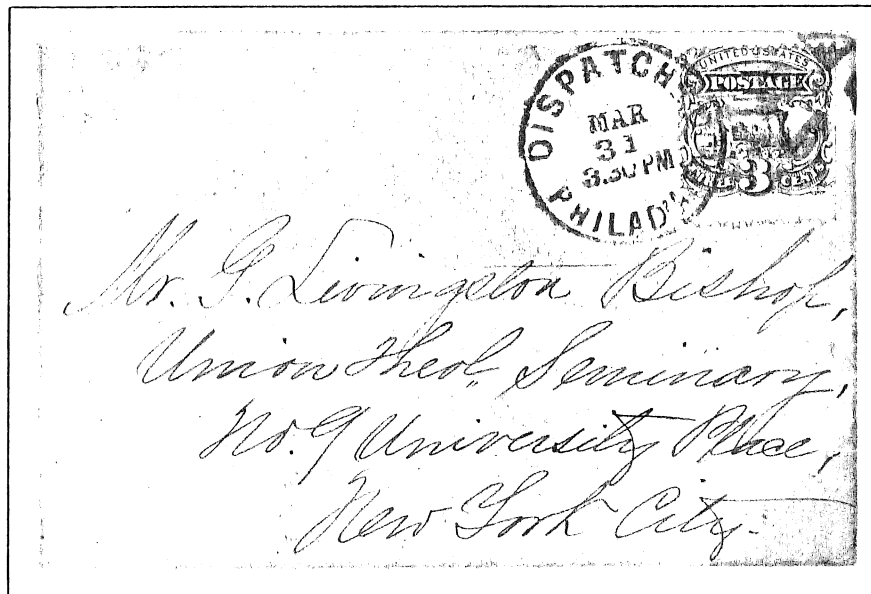 DISPATCH
MAR
31
3.30 PM
PHILAD'A
UNITED STATES
POSTAGE
3 CENTS
Mr. G. Livingston Bishop,
Union Theol. Seminary,
No. 9 University Place,
New York City.